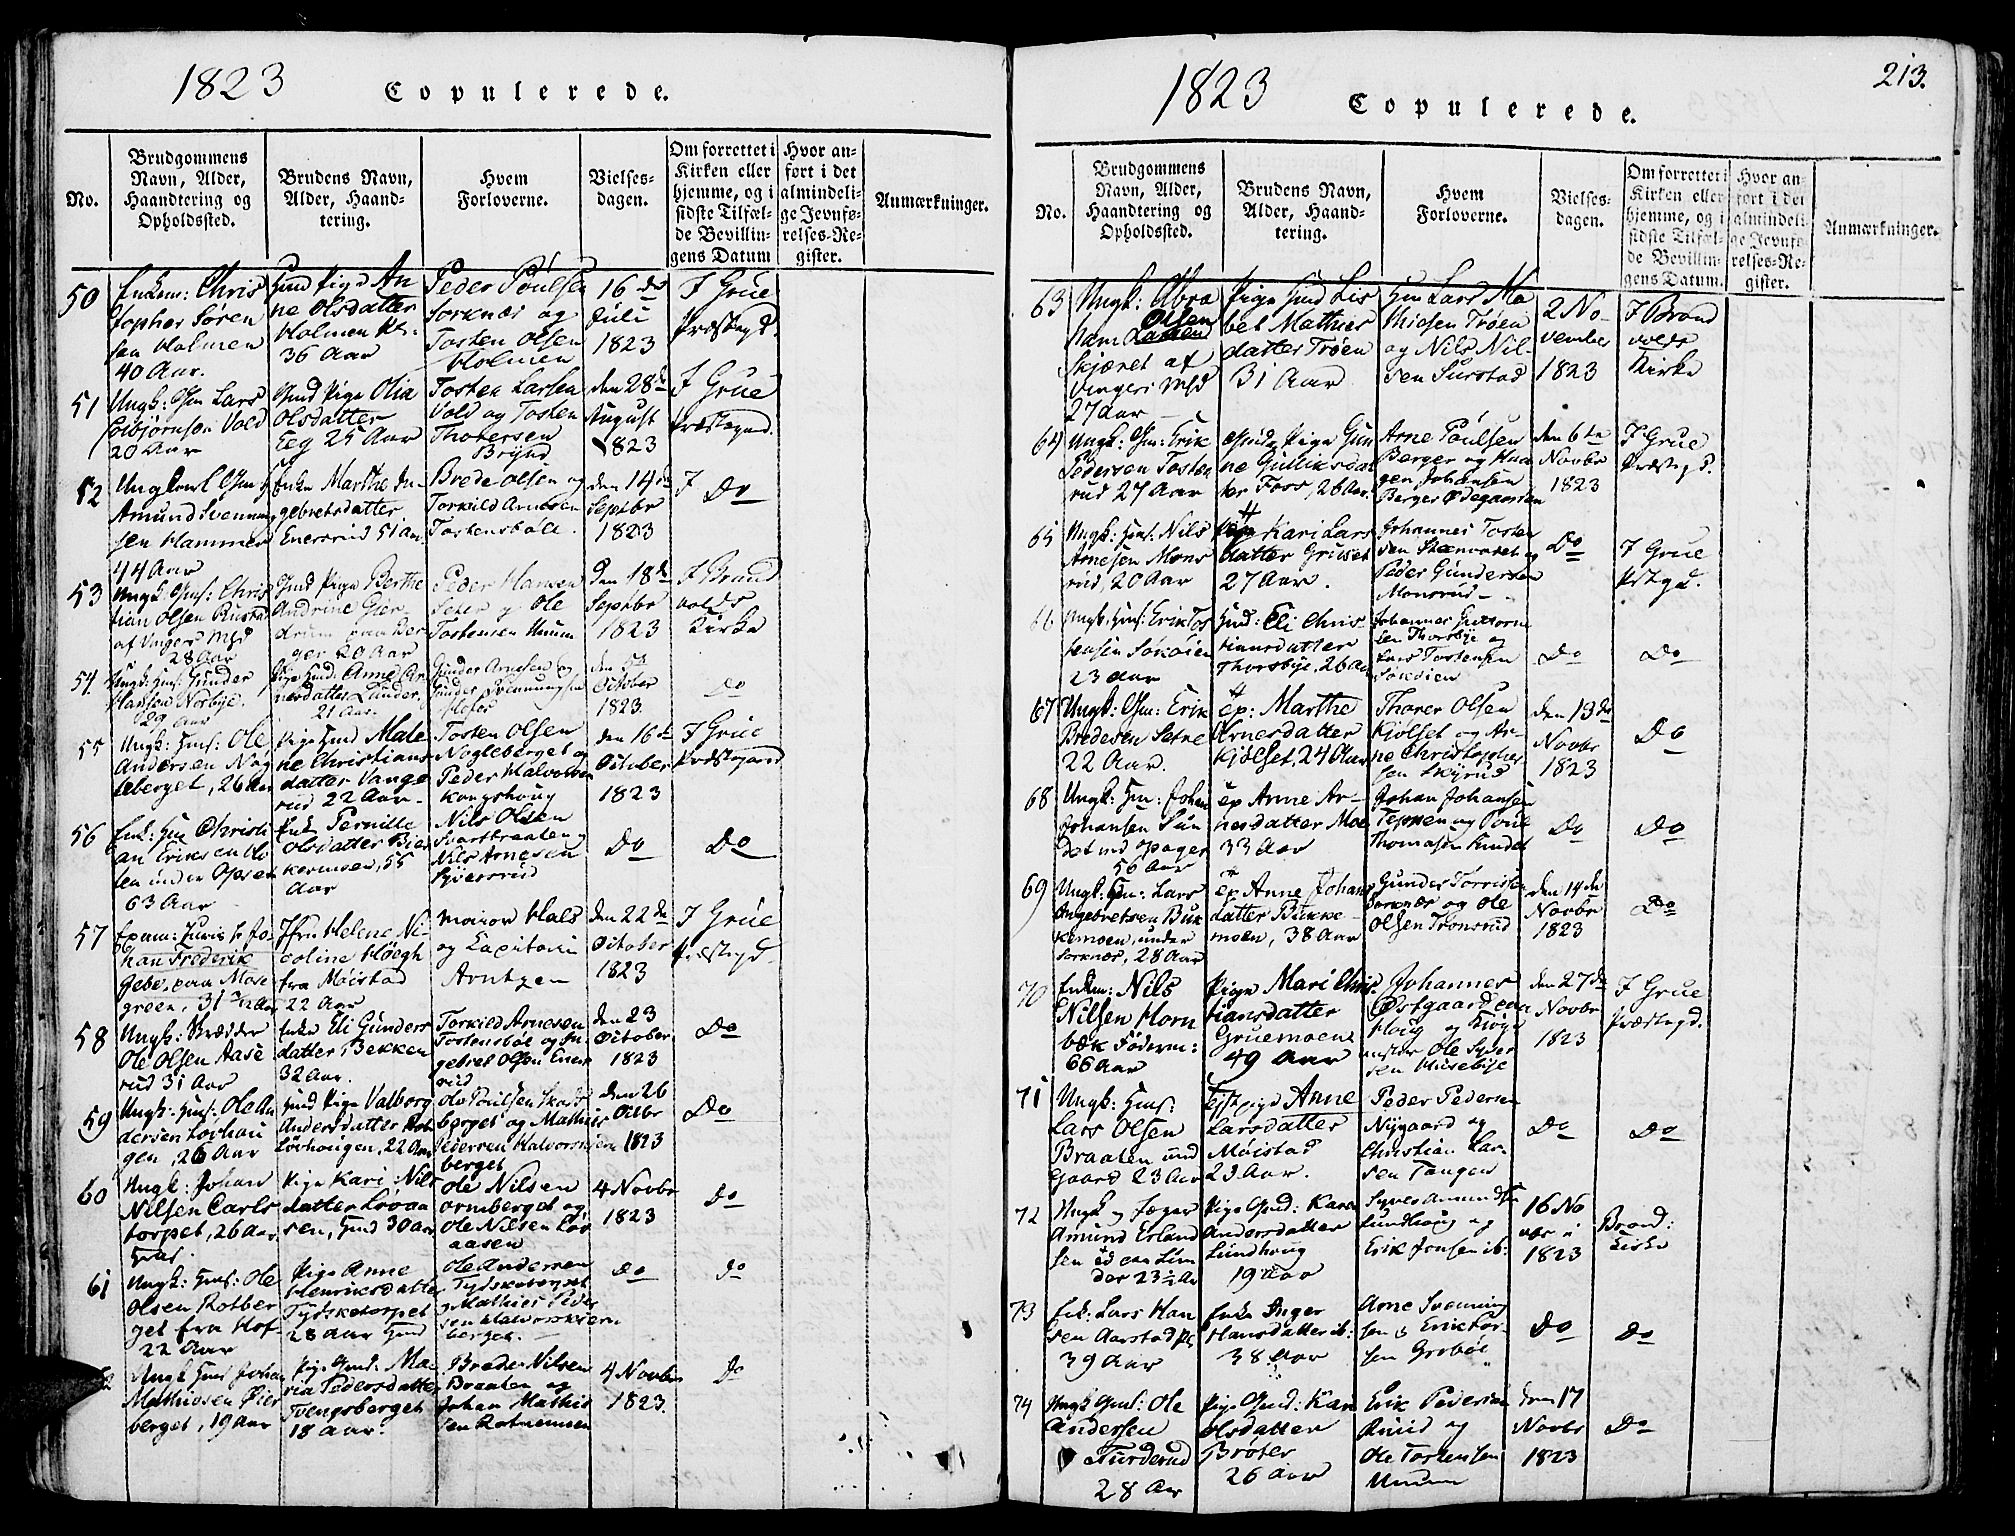 1823 Copulerede.
No.
Brudgommens Navn, Alder, Haandtering og Opholdssted.
Brudens Navn, Alder, Haandtering.
Hvem Forloverne.
Vielses-dagen.
Om forrettet i Kirken eller hjemme, og i sidste Tilfælde Bevillingens Datum
Hvor anført i det almindelige Jevnførelses-Register.
Anmærkninger.
50
Enkem: Chris
topher Søren
sen Holmen
40 Aar.
Gmd Pige An
ne Olsdatter
Holmen
36 Aar
Peder Poulsen
Sorknæs og
Tosten Olsen
Holmen
16 de
Juli
1823
I Grue
Præstegd.
51
Ungk: Gm Lars
Esbjørnsen Vold
20 Aar
Gmd Pige Olia
Olsdatter
Eeg 25 Aar
Tosten Larsen
Vold og Tosten
Thoresen
Brynd
den 28de
August
1823
I Grue
Præstegrd.
52
Ungkarl Gm
Amund Svenning
sen Hammer
44 Aar
Enke Marthe In
gebretsdatter
Enersrud 51 Aar.
Brede Olsen og
Torkild Arnesen
Tostensbøle.
den 14de
Septbr
1823
I Do
53
Ungk: Gms: Chris
tian Olsen Rustad
af Vinger
28 Aar
Gmd Pige Berthe
Andrine Gier
drum paa Ber
ger 20 Aar
Peder Hansen
Seter og Ole
Tostensen Unum
Den 18de
Septbr
1823
I Brand
volds
Kirke
54
Ungk: Gms: Gunder
Hansen Norbye.
29 Aar
Pige Gmd: Anne Ar
nesdatter Lunder,
21 Aar.
Gunder Arnesen og
Gunder Svenningsen
den 5te
October
1823.
Do
55
Ungk: Gms: Ole
Andersen Nog
leberget, 26 Aar
Pige Gmd Male
ne Christians
datter Vange
rud 22 Aar
Tosten Olsen
Nogleberget og
Peder Halvorsen
Kongshoug
den 16de
October
1823
I Grue
Præstegaard
56
Enk: Gm Christi
an Eriksen Ho
len under Opset
63 Aar
Enk Pernille
Olsdatter Bier
kermoen, 55
Aar
Nils Olsen
Svartbraaten
Nils Arnesen
Do
Do
57
Exam: Juris Jo
han Frederik
Gebe, paa Mose
green, 31½ Aar
Jfru Helene Ni
coline Høegh
fra Møistad
22 Aar
Maior Hals
og Capitain
Arntzen
den 22de
October
1823
I Grue
Præstegd.
58
Ungk: Skrædder
Ole Olsen Aase
rud 31 Aar
Enke Eli Gunders
datter, Bekken
32 Aar.
Torkild Arnesen
Tostensbøle og In
gebret Olsen Eners
rud
den 23
October
1823
Do
59
Ungk: Gms: Ole An
dersen Løvhau
gen, 26 Aar
Gmd Pige Valborg
Andersdatter
Løvhougen, 22 Aar
Ole Poulsen Skads
berget og Mathis
Pedersen Halvorsri
berget
den 26
Octbr
1823
Do
60
Ungk: Johan
Nilsen Carls
torpet, 26 Aar
Gms.
Pige Kari Nils
datter Løvaa
sen, Gmd 30 Aar
Ole Nilsen
ormberget og
Ole Nilsen Løv
aasen
4 Novbr
1823
Do
61
Ungk: Gms: Ole
Olsen Rotber
get fra Hof
22 Aar
Pige Anne
Henriksdatter
Tydsketorpet
28 Aar Gmd
Ole Andersen
Tydskeberget
og Mathies Peder
sen Halvorsrien
berget.
Do
Do
Ungk Gms Johan
Mathiesen Øier
berget, 19 Aar
Pige Gmd: Ma
ria Pedersdatter
Tvengsberget
18 Aar.
Brede Nilsen
Braaten og
Johan Mathis
sen Rotnemoen
4 Novbr
1823.
Do
1823 Copulerede.
213.
No.
Brudgommens Navn, Alder, Haandtering og Opholdssted.
Brudens Navn, Alder, Haandtering.
Hvem Forloverne.
Vielses-dagen.
Om forrettet i Kirken eller hjemme, og i sidste Tilfælde Bevillingens Datum.
Hvor anført i det almindelige Jevnførelses-Register.
Anmærkninger.
63
Ungk: Abra
ham Olsen
Skjæret af
Vingers
27 Aar
Pige Gmd Lis
bet Mathies
datter Trøen
31 Aar
Gm Lars Ma
thiesen Trøen
og Nils Nil
sen Surstad
2 No
vember
1823
I Brand
volds
Kirke
64
Ungk: Gm: Erik
Pedersen Tosten
rud 27 Aar
Gmds Pige Gun
ne Gulliksdat
ter Foss, 26 Aar.
Arne Poulsen
Berger og Haa
gen Johansen
Berger Ødegaarden
den 6te
Novbr
1823
I Grue
Præstegd.
65
Ungk: Gms: Nils
Arnesen Mons
rud, 20 Aar
Pige Kari Lars
datter Grueset
27 Aar.
Johannes Tosten
sen Skenvaset og
Peder Gundersen
Monsrud
Do
I Grue
Pstgd.
66
Ungk: Gms: Erik Tos
tensen Sokoien
23 Aar
Gmd: Eli Chris
tiansdatter
Thorsbye, 26 Aar
Johannes Guttorm
sen Thorsbye og
Lars Tostensen
Do
Do
67
Ungk: Gm: Erik
Bredesen Sætre
22 Aar.
ep: Marthe
Arnesdatter
Kjølset, 24 Aar
Thorer Olsen
Kjølset og Ar
ne Christopher
sen Skyrud
den 13de
Novbr
1823
Do
68
Ungk: Gm: Johan
Johansen Sun
det ved Opager
56 Aar
ep Anne Ar
nesdatter Moe
33 Aar
Johan Johansen
Teppen og Poul
Thomasen Sundet
Do
Do
69
Ungk: Gm: Lars
Engebretsen Buk
kemoen, under
Sorknæs, 28 Aar
ep Anne Johans
datter Bukke
moen, 38 Aar
Gunder Torrissen
Sorknær og Ole
Olsen Tronsrud
den 14de
Novbr
1823
Do
70
Enkem: Nils
Nilsen Horn
bæk Føderm:
66 Aar
Pige Mari Chris
tiansdatter
Gruemoen
49 Aar
Johannes
Østgaard paa
Houg og Kiøge
mester Ole Syver
sen Husebye
den 27de
Novbr
1823
I Grue
Præstegd.
71
Ungk: Gms:
Lars Olsen
Braaten und
Gaard 23 Aar
Tjstpige Anne
Larsdatter
Møistad
23 Aar.
Peder Pedersen
Nygaard og
Christian Lar
sen Tangen
Do
Do
72
Ungk og Jæger
Amund Erland
sen
der 23½ Aar
Pige Gmd: Karen
Andersdatter
Lundhoug
19 Aar
Syver Amundsen
Lundhoug og
Erik Jensen ib:
16 No
vbr
1823
Brand:
Kirke
73
Enk: Lars Han
sen Aarstad Pl
39 Aar
Enke Inger
Hansdatter ib:
38 Aar
Arne Svenning
sen og Erik Tor
sen Grobøl
Do
Do
74
Ungk Gms: Ole
Andersen
Turderud
28 Aar
Pige Gmd: Kari
Olsdatter
Brøter
26 Aar
Erik Pedersen
Ruud og
Ole Tostensen
Unum
den 17
Novbr
1823
Do